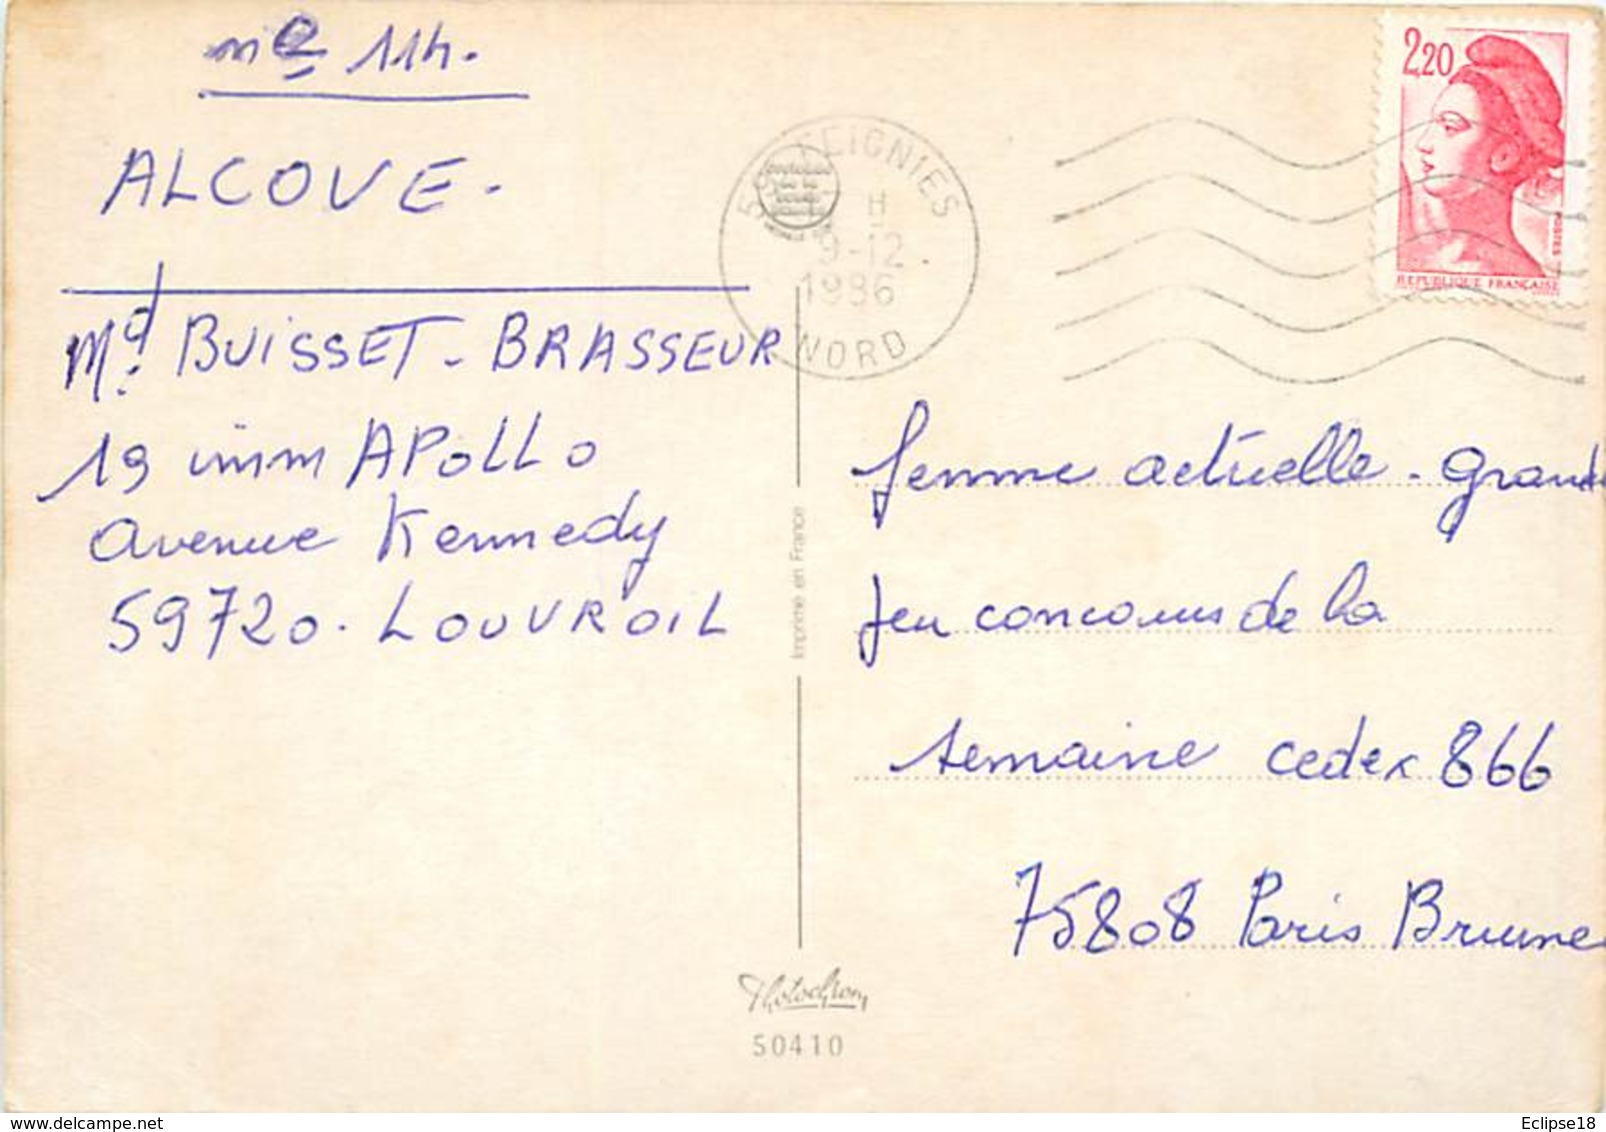 nº 114.
ALCOVE.
Md BUISSET - BRASSEUR
19 imm APOLLO
avenue Kennedy
59720. LOUVROIL
FEIGNIES
H
9-12.
1986
NORD
2,20
POSTES
REPUBLIQUE FRANÇAISE
femme actuelle - grand
Jeu concours de la
semaine cedex 866
75808 Paris Brune
Imprimé en France
Photochrom
50410
Eclipse18